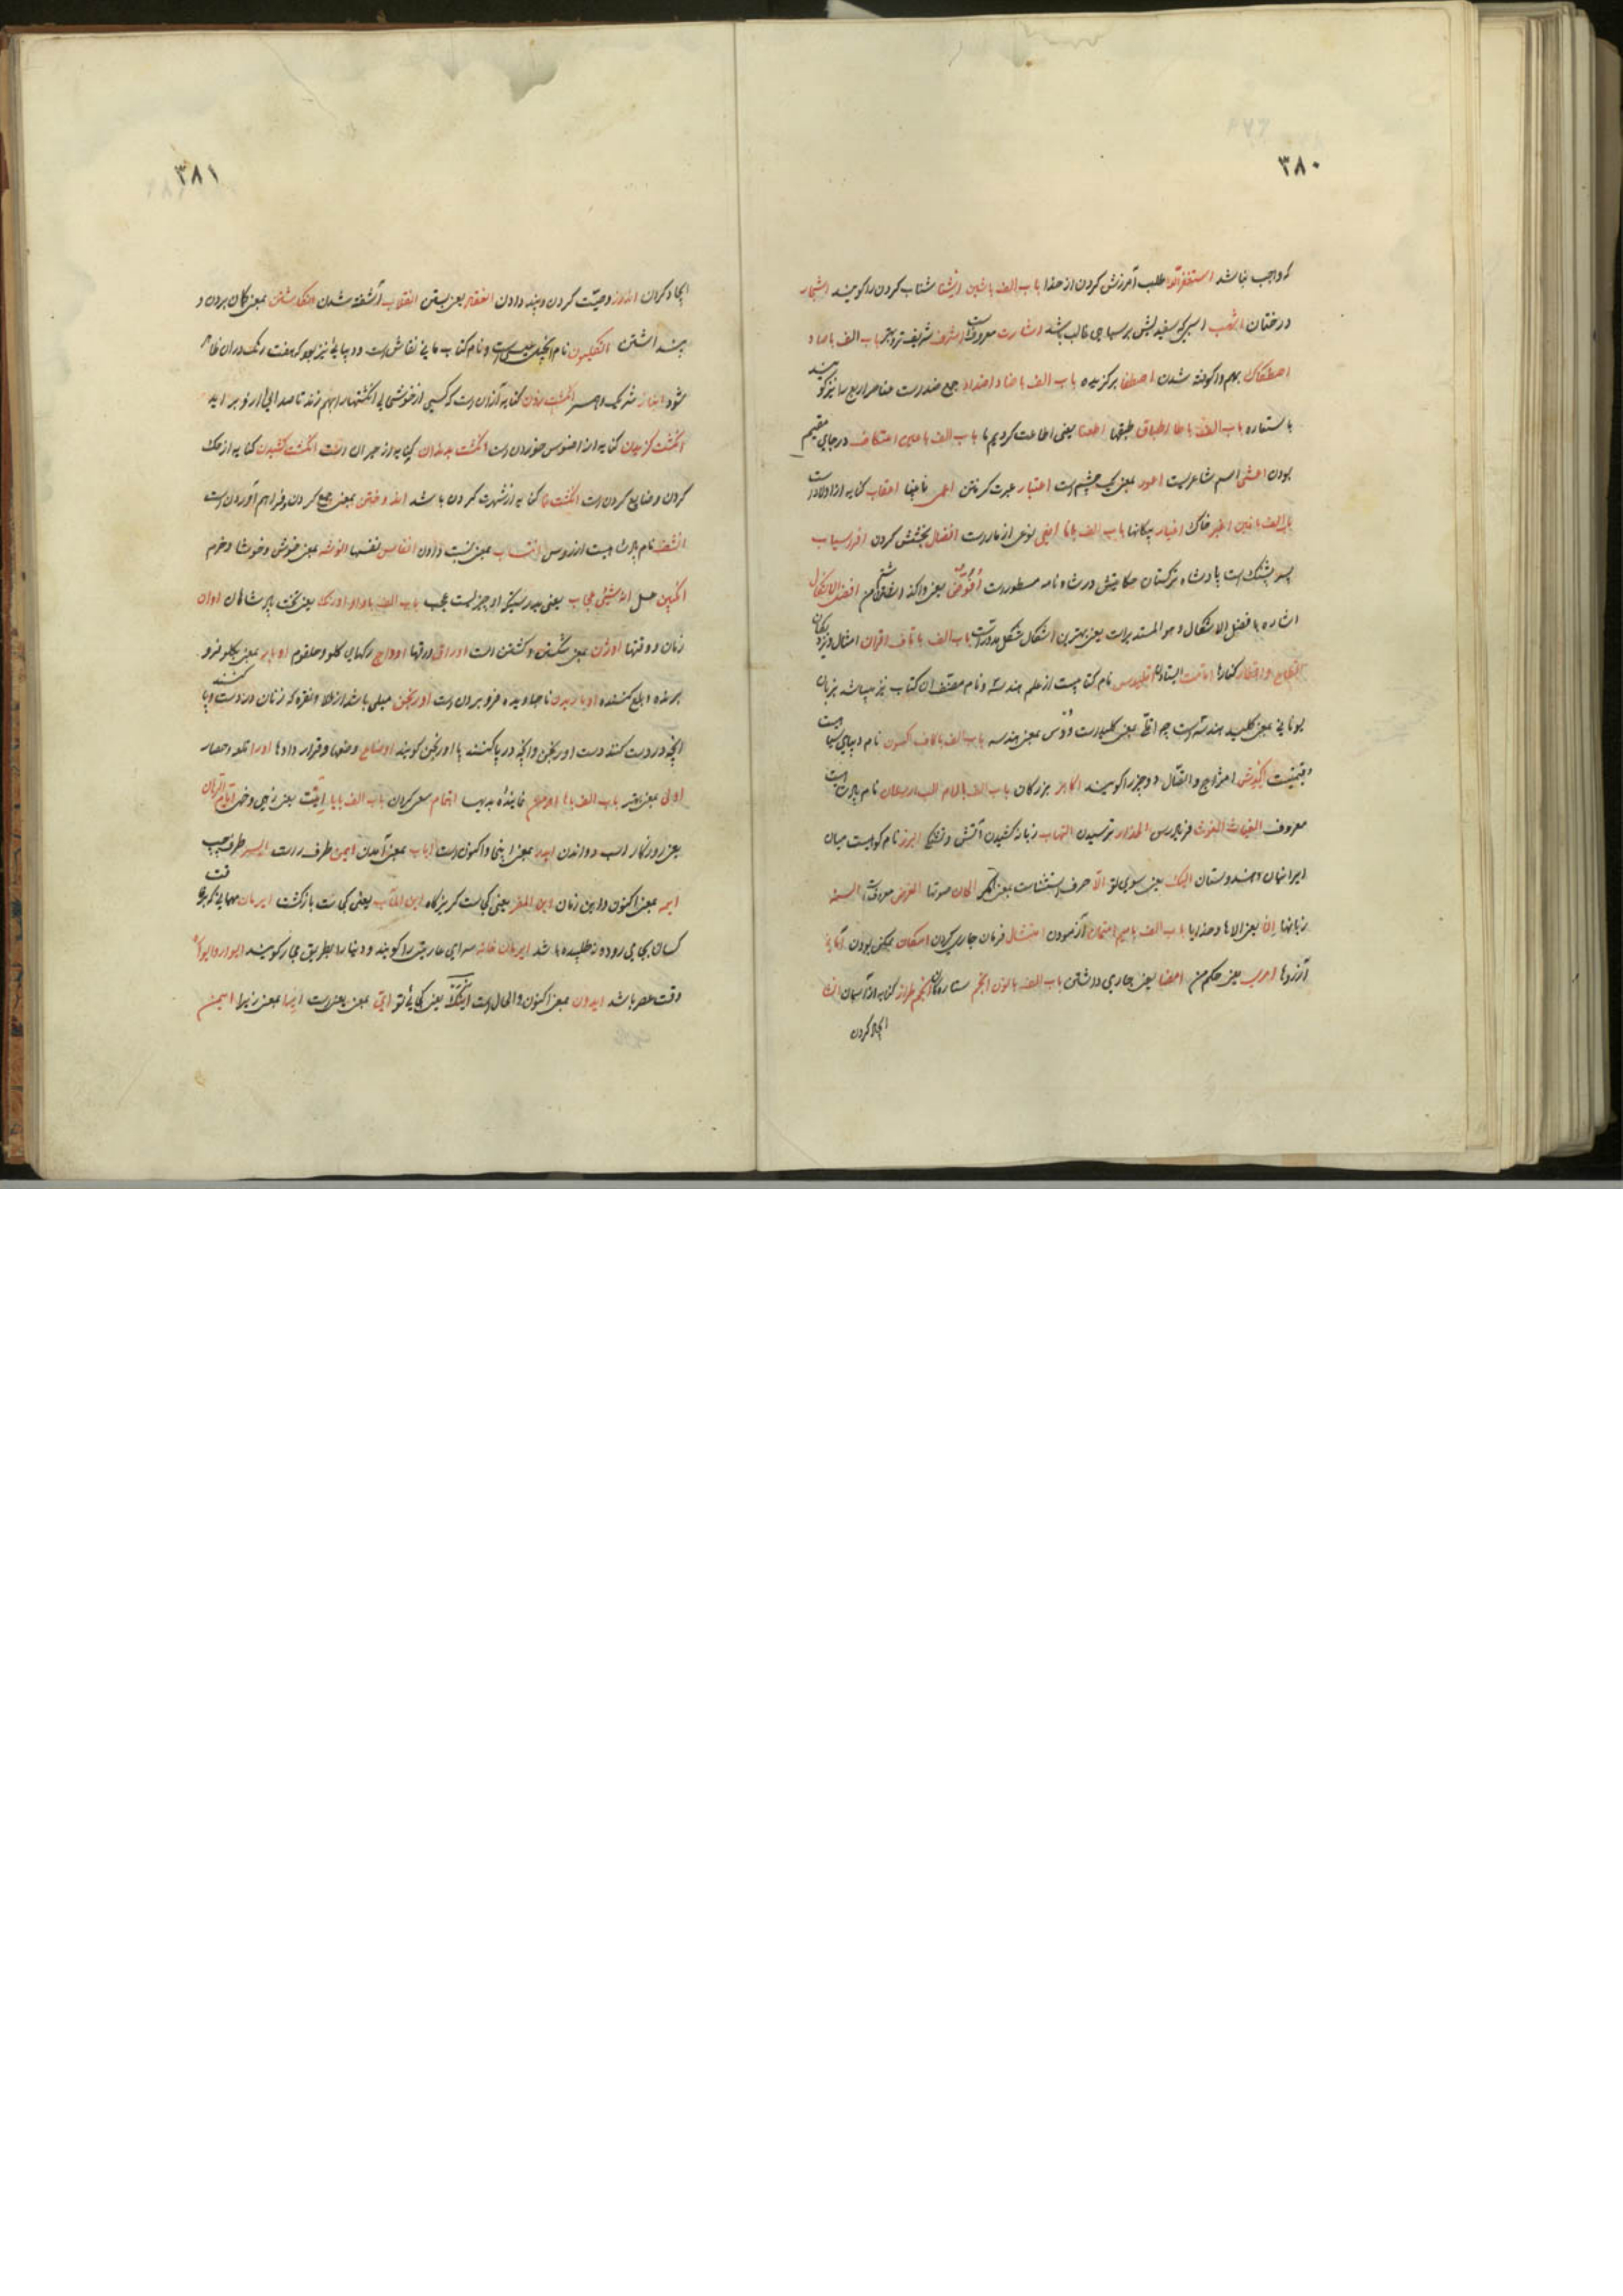 ۳۸۰
که واجب باشد استغفرالله طلب آمرزش کردن از خدا باب الف با شین شتاب کردن را گویند اشجار
درختان اشهب اسبی که سفیدیش بر سیاهی غالب باشد اشارت معروف است اشرف شریف تر باب الف با صاد
اصطکاک بهم واکوفته شدن اصطفا برگزیده باب الف با ضاد اضداد جمع ضد است عناصر اربع را نیز گویند
باستعاره باب الف با طا اطباق طبقها اطعنا یعنی اطاعت کردیم ما باب الف با عین اعتکاف در جای مقیم
بودن اعشی اسم شاعریست اعور بمعنی یک چشم است اعتبار عبرت گرفتن اعمی نابینا اعقاب کنایه از اولاد است
باب الف با غین اغبر خاک اغیار بیگانها باب الف با فا افعی نوعی از مار است افضال بخشش کردن افراسیاب
پسر پشنگ است پادشاه ترکستان حکایتش در شاه نامه مسطور است افوض یعنی واگذاشتن من افضل الاشکال
اشاره با فضل الاشکال و هو المستدیر است یعنی بهترین اشکال شکل مدور است باب الف با قاف اقران امثال و نزدیکان
اقطار کنارها اقامت ایستادن اقلیدس نام کتابیست از علم هندسه و نام مصنف آن کتاب نیز میباشد بزبان
یونانی بمعنی کلید هندسه است چه اقلی بمعنی کلید است و دس بمعنی هندسه باب الف با کاف اکسون نام دیبای سیاه است
قیمت اکدش امتزاج و اتصال دو چیز را گویند اکابر بزرگان باب الف با لام الب ارسلان نام پادشاه است
معروف الغیاث الغوث فریادرس الحذار ترسیدن التهاب زبانه کشیدن آتش البرز نام کوهیست میان
ایران و هندوستان الیک یعنی بسوی تو الا حرف استثناست بمعنی مگر الحان صوتها الغرض معروف است السنه
زبانها باب الف با میم امتحان آزمودن امتثال فرمان جاری کردن امکان ممکن بودن امانی
آرزوها امری یعنی حکم من امضا یعنی جاری داشتن باب الف با نون انجم ستارگان انجم طراز کنایه از آسمان
ایجاد کردن
۳۸۱
ایجاد کردن اندرز وصیت کردن و پند دادن انعقاد یعنی بستن انقلاب آشفته شدن انگاشتن بمعنی گمان بردن و
پنداشتن انگلیون نام انجیل عیسی است و نام کتاب مانی نقاش است و دیبائی نیز بود که هفت رنگ در آن ظاهر
شود انباز شریک و همسر انگشت زدن کنایه از آن است که کسی از خوشحالی انگشتها را بهم زند تا صدائی از او برآید
انگشت گزیدن کنایه از افسوس خوردن است انگشت بدندان کنایه از حیران است انگشت کشیدن کنایه از حک
کردن و ضایع کردن است انگشت نما کنایه از شهرت کردن باشد اندوختن بمعنی جمع کردن و فراهم آوردن است
نام پادشاهیست از روس انتساب بمعنی نسبت دادن انفاس نفسها انوشه بمعنی خوش و خوشا و خرم
انگبین عسل ان شیئی عجاب یعنی بدرستیکه او چیزیست عجب باب الف با واو اورنگ یعنی تخت پادشاهان اوان
زمان و وقتها اوژن بمعنی شکستن و کشتن است اوراق ورقها اوداج رگهای گلو و حلقوم اوبار بمعنی بگلو فرو
برنده و بلع کننده اوباریدن ناجاویده فرو بردن است اورنجن حلی باشد از طلا و نقره که زنان در دست و پا کنند
آنچه در دست کنند دست اورنجن و آنچه در پا کنند پا اورنجن گویند اوضاع وضعها و قرار دادها اورا قلعه و حصار
اولی بمعنی بهتر باب الف با ها اهدا نماینده هدیه اهتمام سعی کردن باب الف با یا ایت یعنی زهی و خهی ایام الزمان
یعنی روزگار دواندن ایدر بمعنی اینجا و اکنون است ایاب بمعنی آمدن ایمن طرف راست ایسر طرف چپ
ایمه بمعنی اکنون و این زمان این المفر یعنی کجاست گریزگاه این المآب یعنی کجاست بازگشت ایرمان مهمانی که بی رفت
کسان بجایی رود و ناطلبیده باشد ایرمان خانه سرای عاریتی را گویند و دنیا را بطریق مجاز گویند ایوار
وقت عصر باشد ایدون بمعنی اکنون و الحال است اینک یعنی کجائی تو ایتی ایرا بمعنی زیرا ایمن